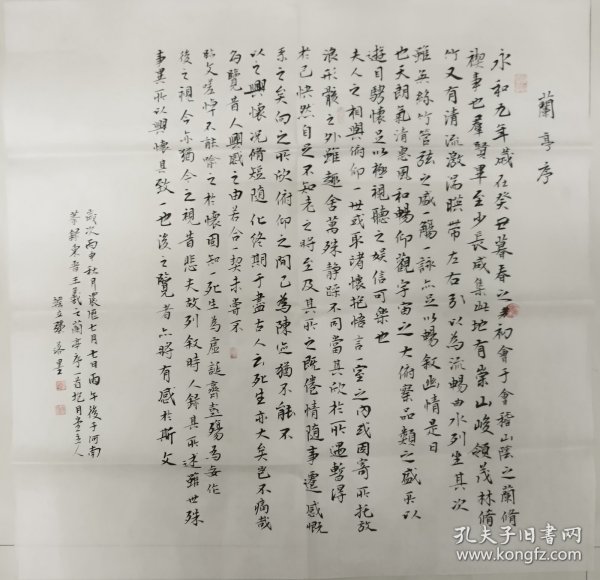 蘭亭序
永和九年歲在癸丑暮春之初會于會稽山陰之蘭脩
禊事也羣賢畢至少長咸集此地有崇山峻領茂林脩
竹又有清流激湍暎帶左右引以為流觴曲水列坐其次
雖無絲竹管弦之盛一觴一詠亦足以暢敘幽情是日
也天朗氣清惠風和暢仰觀宇宙之大俯察品類之盛所以
遊目騁懷足以極視聽之娛信可樂也
夫人之相與俯仰一世或取諸懷抱悟言一室之內或因寄所託放
浪形骸之外雖趣舍萬殊静躁不同當其欣於所遇暫得
於己怏然自足不知老之將至及其所之既倦情随事遷感慨
系之矣向之所欣俯仰之間已為陳迹猶不能不
以之興懷況脩短随化終期于盡古人云死生亦大矣豈不痛哉
每覽昔人興感之由若合一契未嘗不
臨文嗟悼不能喻之於懷固知一死生為虛誕齊彭殤為妄作
後之視今亦猶今之視昔悲夫故列敘時人錄其所述雖世殊
事異所以興懷其致一也後之覽者亦將有感於斯文
歲次丙申秋月農曆七月七日雨午後于河南
錄東晉王羲之蘭亭序一首月堂主人
落墨
孔夫子旧书网
www.kongfz.com